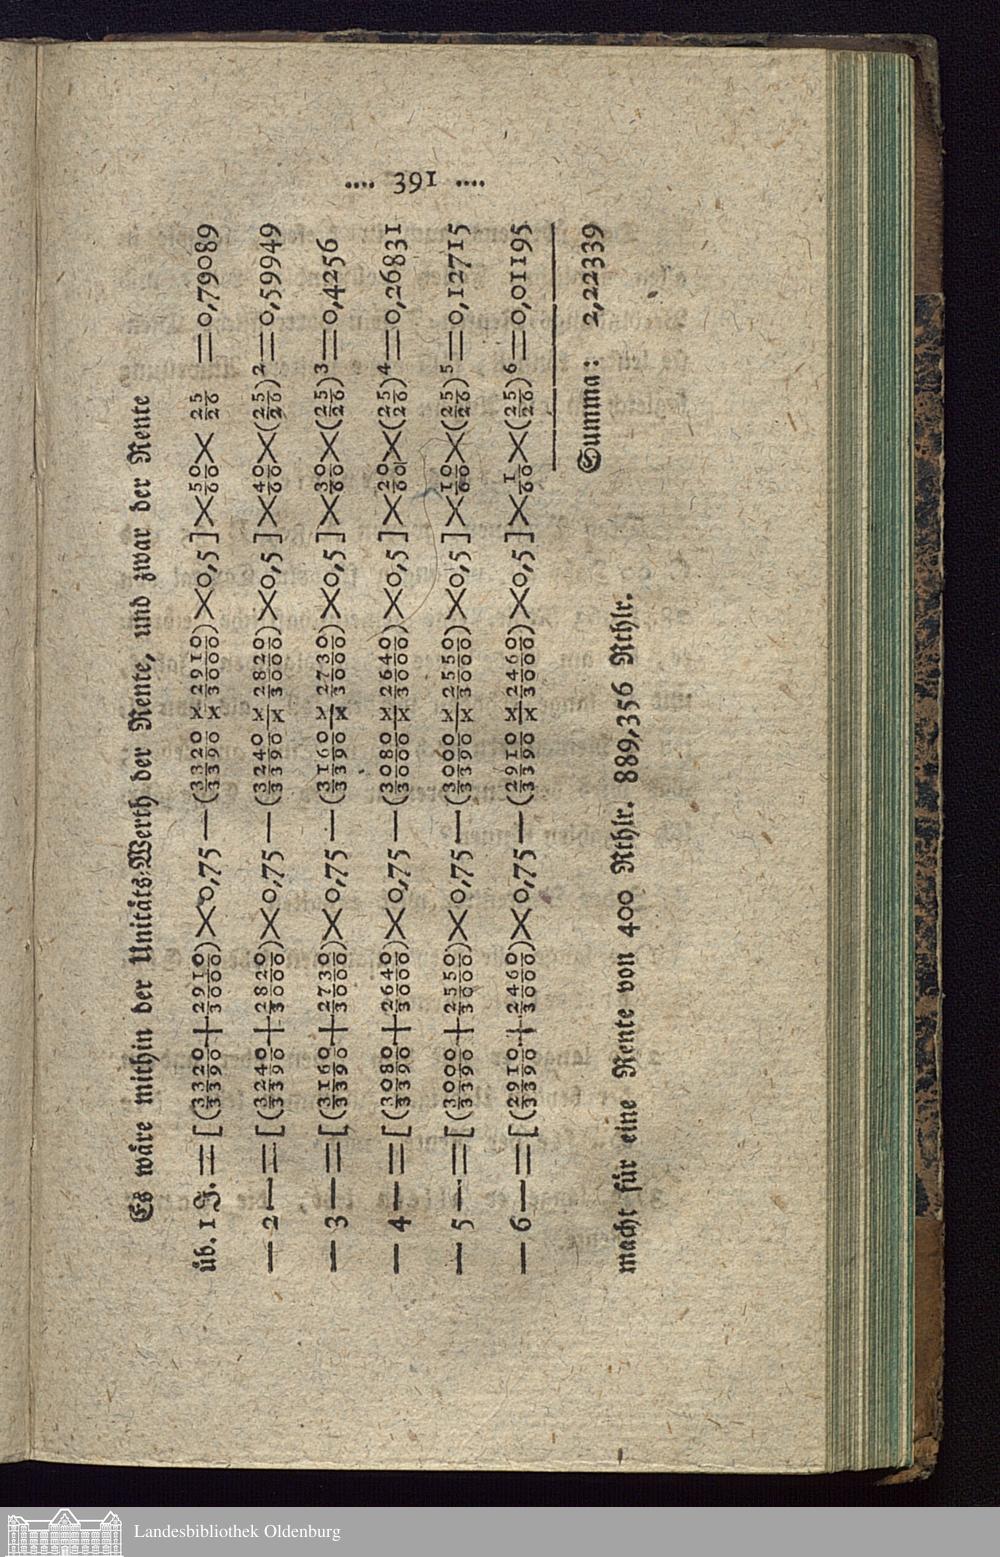 .... 391 ....
Es wäre mithin der Unitäts-Werth der Rente, und zwar der Rente
üb. 1 J. = [(3320/3390 + 2910/3000) × 0,75 — (3320/3390 × 2910/3000) × 0,5] × 50/60 × 25/26 = 0,79089
— 2 — = [(3240/3390 + 2820/3000) × 0,75 — (3240/3390 × 2820/3000) × 0,5] × 40/60 × (25/26)² = 0,59949
— 3 — = [(3160/3390 + 2730/3000) × 0,75 — (3160/3390 × 2730/3000) × 0,5] × 30/60 × (25/26)³ = 0,4256
— 4 — = [(3080/3390 + 2640/3000) × 0,75 — (3080/3000 × 2640/3000) × 0,5] × 20/60 × (25/26)⁴ = 0,26831
— 5 — = [(3000/3390 + 2550/3000) × 0,75 — (3000/3390 × 2550/3000) × 0,5] × 10/60 × (25/26)⁵ = 0,12715
— 6 — = [(2910/3390 + 2460/3000) × 0,75 — (2910/3390 × 2460/3000) × 0,5] × 1/60 × (25/26)⁶ = 0,01195
Summa: 2,22339
macht für eine Rente von 400 Rthlr. 889,356 Rthlr.
Landesbibliothek Oldenburg